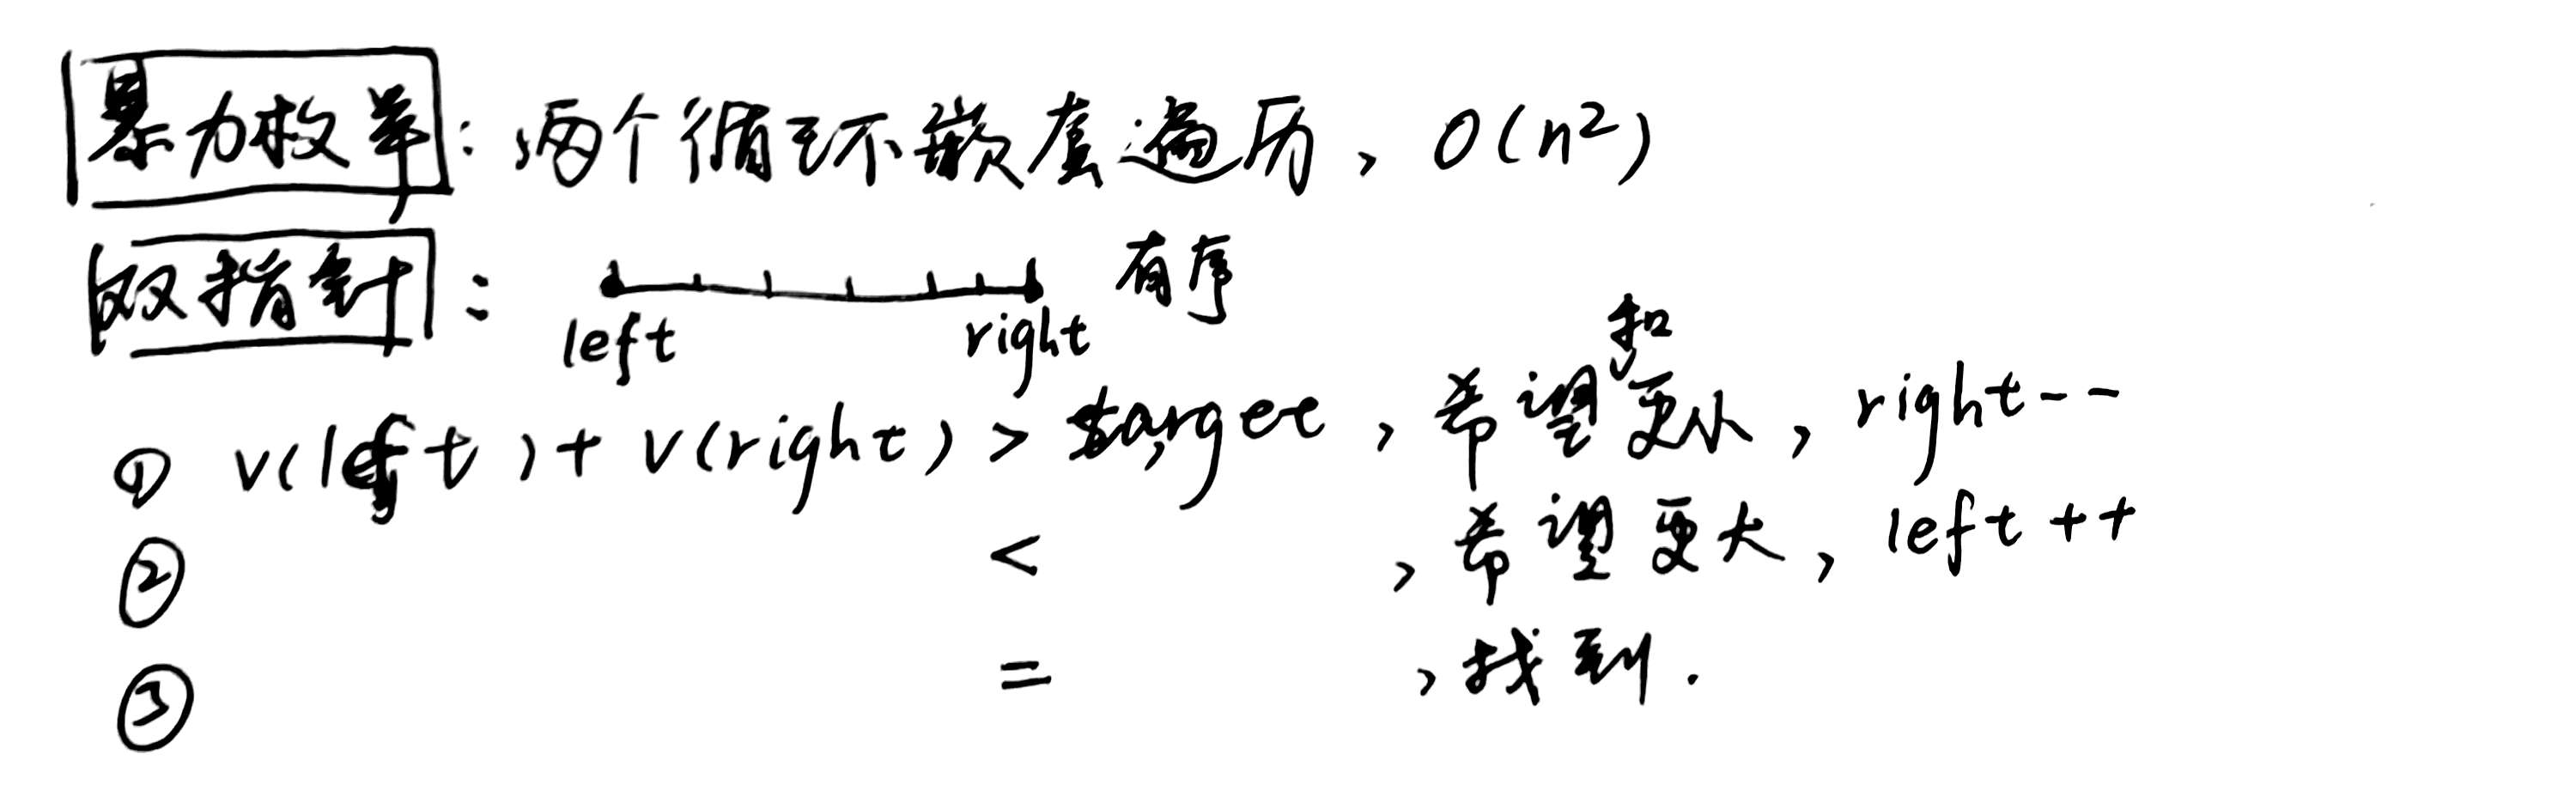 暴力枚举：两个循环嵌套遍历，O(n²)
双指针： 有序
left right
① v(left)+v(right) > target，希望和更小，right--
② < ，希望更大，left++
③ = ，找到.